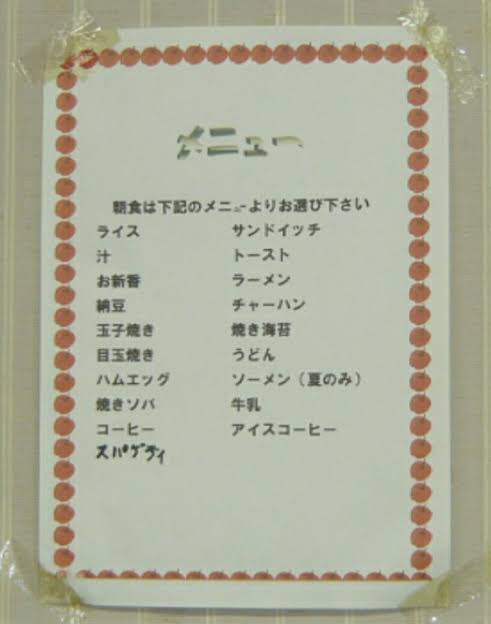 メニュー
朝食は下記のメニューよりお選び下さい
ライス サンドイッチ
汁 トースト
お新香 ラーメン
納豆 チャーハン
玉子焼き 焼き海苔
目玉焼き うどん
ハムエッグ ソーメン（夏のみ）
焼きソバ 牛乳
コーヒー アイスコーヒー
スパゲティ